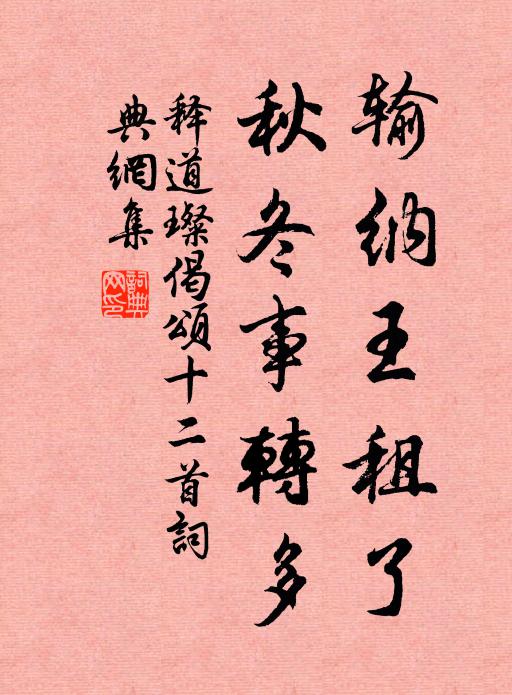 输纳王租了
秋冬事轉多
释道璨偈頌十二首詞
典網集
詞典网印